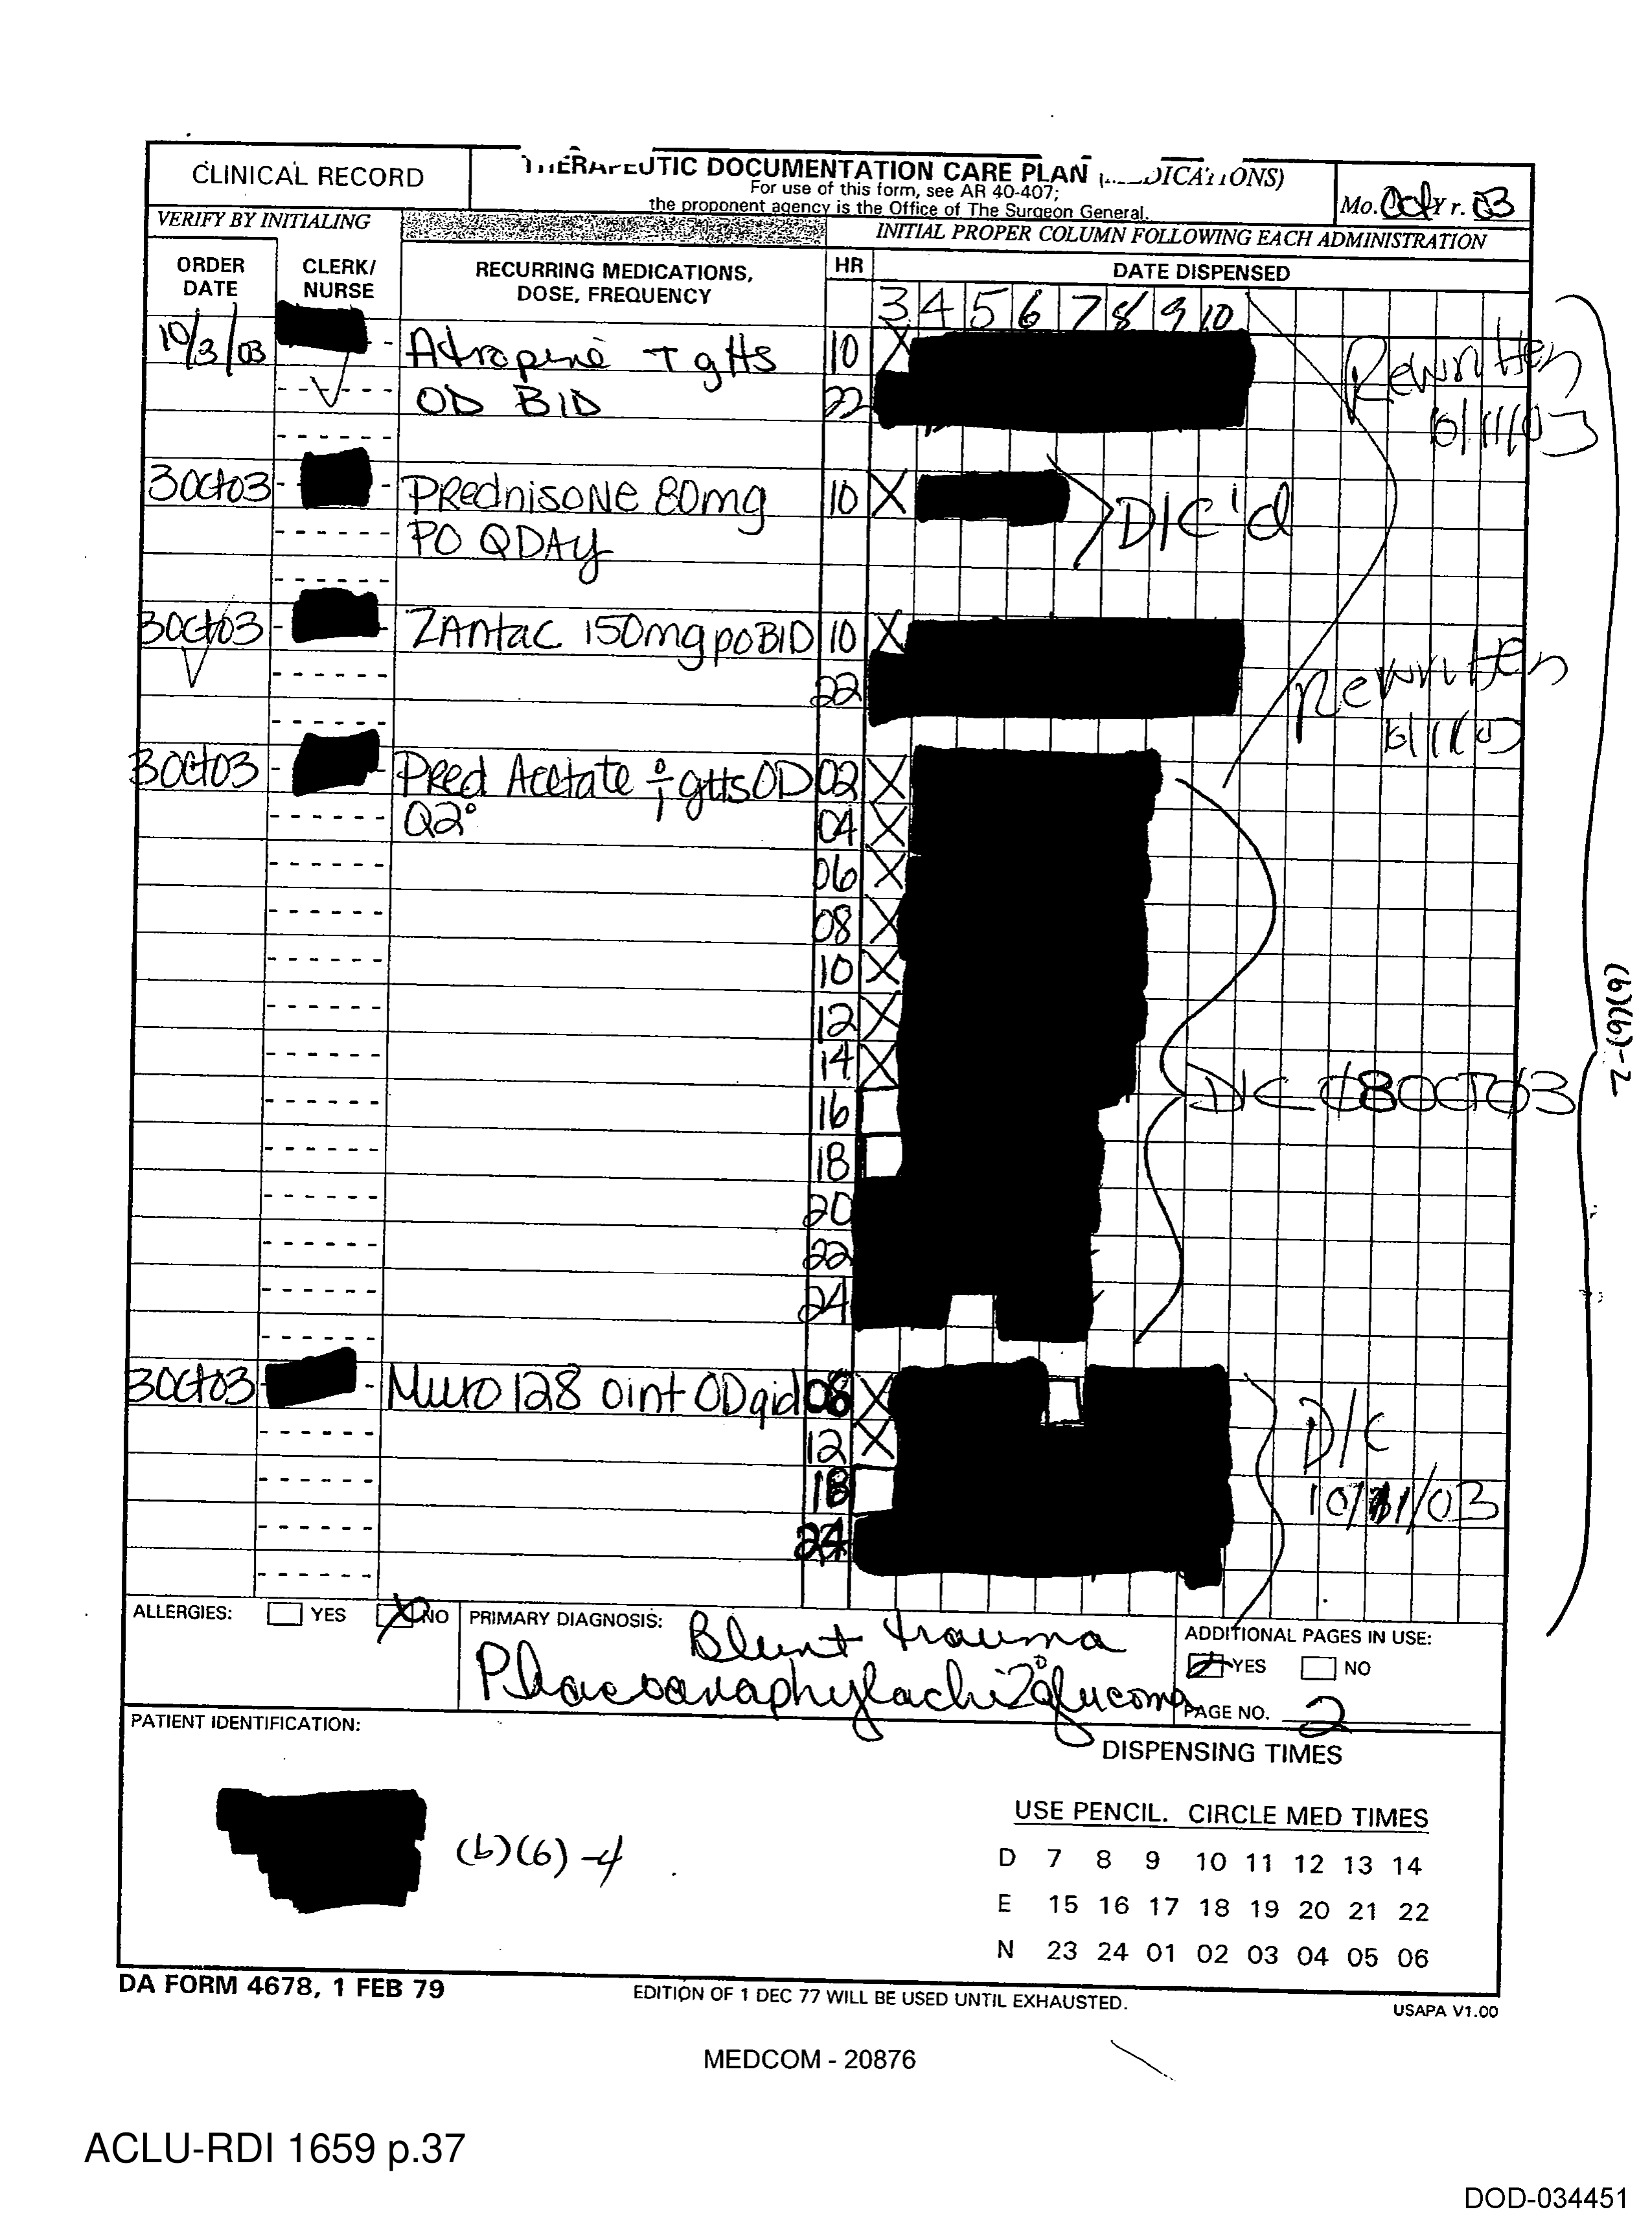 CLINICAL RECORD
THERAPEUTIC DOCUMENTATION CARE PLAN (MEDICATIONS)
For use of this form, see AR 40-407;
the proponent agency is the Office of The Surgeon General.
Mo. Oct Yr. 03
VERIFY BY INITIALING
INITIAL PROPER COLUMN FOLLOWING EACH ADMINISTRATION
ORDER DATE
CLERK/ NURSE
RECURRING MEDICATIONS, DOSE, FREQUENCY
HR
DATE DISPENSED
3 4 5 6 7 8 9 10
10/3/03 Atropine T gtts 10 X Rewritten
OD BID 22 10/11/03
3Oct03 PRednisoNe 80mg 10 X D/C'd
PO QDAy
3Oct03 ZANtac 150mg po BID 10 X Rewritten
22 10/11/03
3Oct03 Pred Acetate gtts OD 02 X
Q2° 04 X
06 X
08 X
10 X
12 X
14 X
16 D/C 08OCT03
18
20
22
24
3Oct03 Muro 128 oint OD qid 08 X D/C
12 X
18 10/11/03
24
(b)(6)-2
ALLERGIES: YES X NO
PRIMARY DIAGNOSIS: Blunt trauma
Phacoanaphylachi 2° glucoma
ADDITIONAL PAGES IN USE:
YES NO
PAGE NO. 2
PATIENT IDENTIFICATION:
(b)(6)-4
DISPENSING TIMES
USE PENCIL. CIRCLE MED TIMES
D 7 8 9 10 11 12 13 14
E 15 16 17 18 19 20 21 22
N 23 24 01 02 03 04 05 06
DA FORM 4678, 1 FEB 79
EDITION OF 1 DEC 77 WILL BE USED UNTIL EXHAUSTED.
USAPA V1.00
MEDCOM - 20876
ACLU-RDI 1659 p.37
DOD-034451